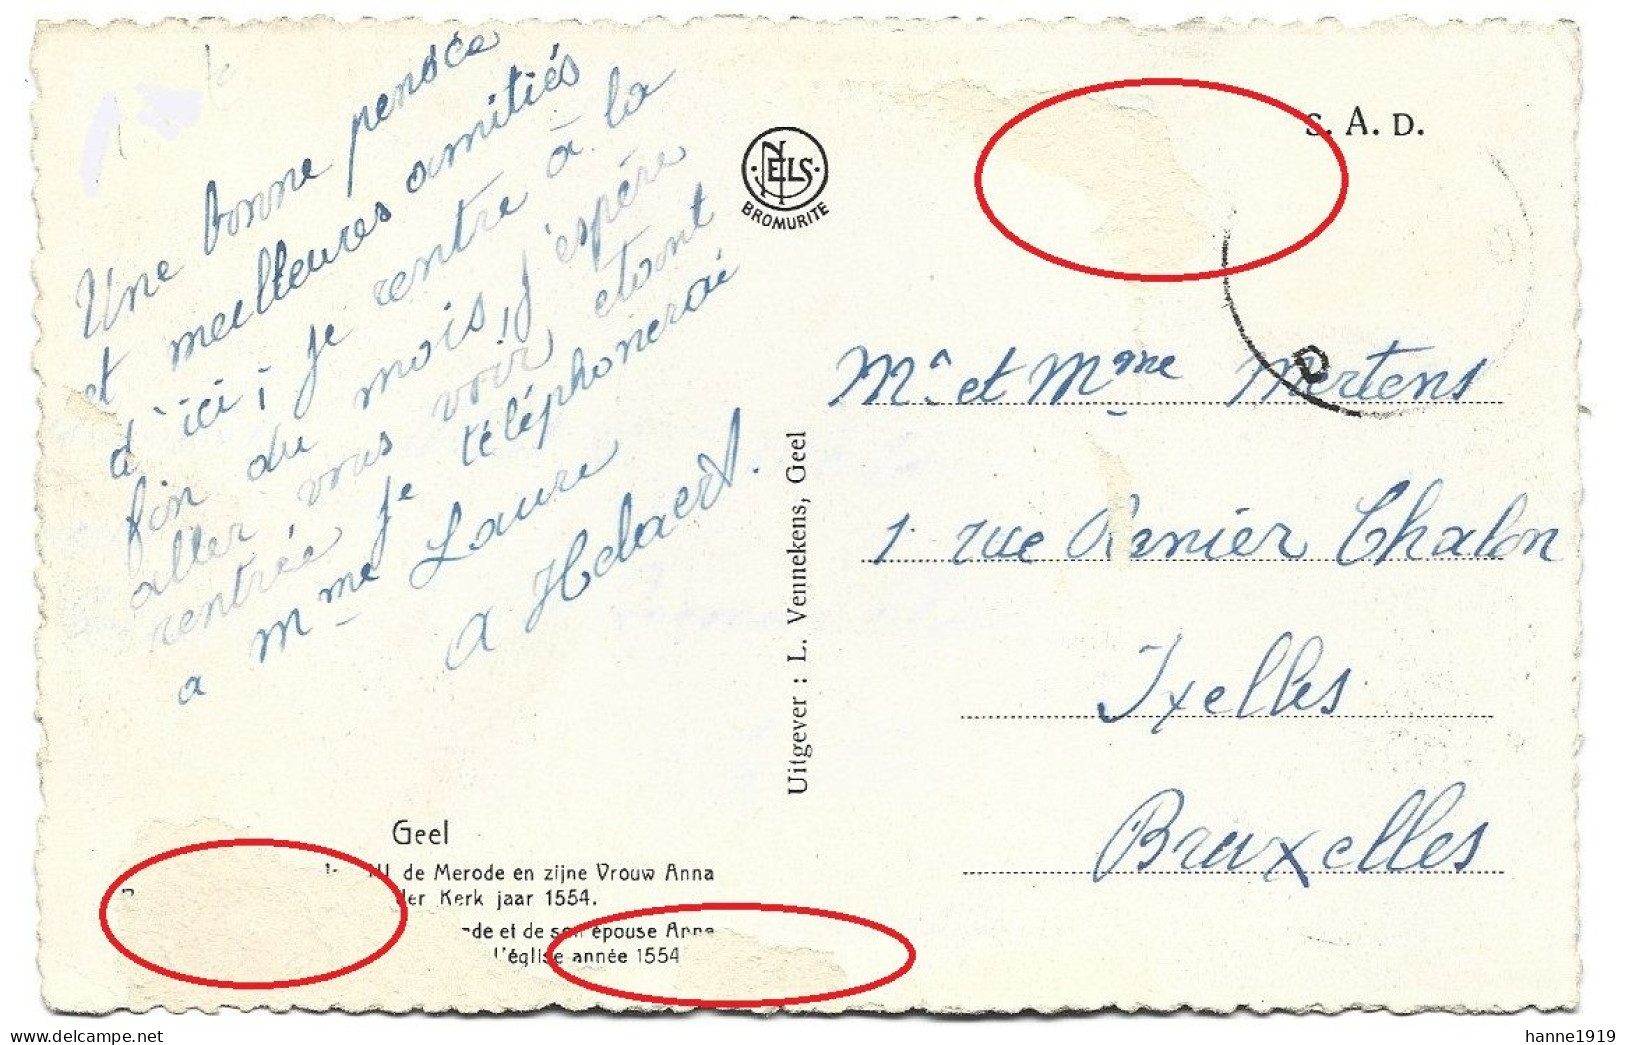 Une bonne pensée
et meilleures amitiés
d'ici, je rentre à la
fin du mois, j'espère
aller vous voir etant
rentrée je téléphonerai
a Mme Laure
a Helaert.
NELS
BROMURITE
S. A. D.
D
Mr et Mme Mertens
1 rue Renier Chalon
Ixelles
Bruxelles
Uitgever : L. Vennekens, Geel
Geel
III de Merode en zijne Vrouw Anna
der Kerk jaar 1554.
de et de son épouse Anna
l'église année 1554
delcampe.net
hanne1919